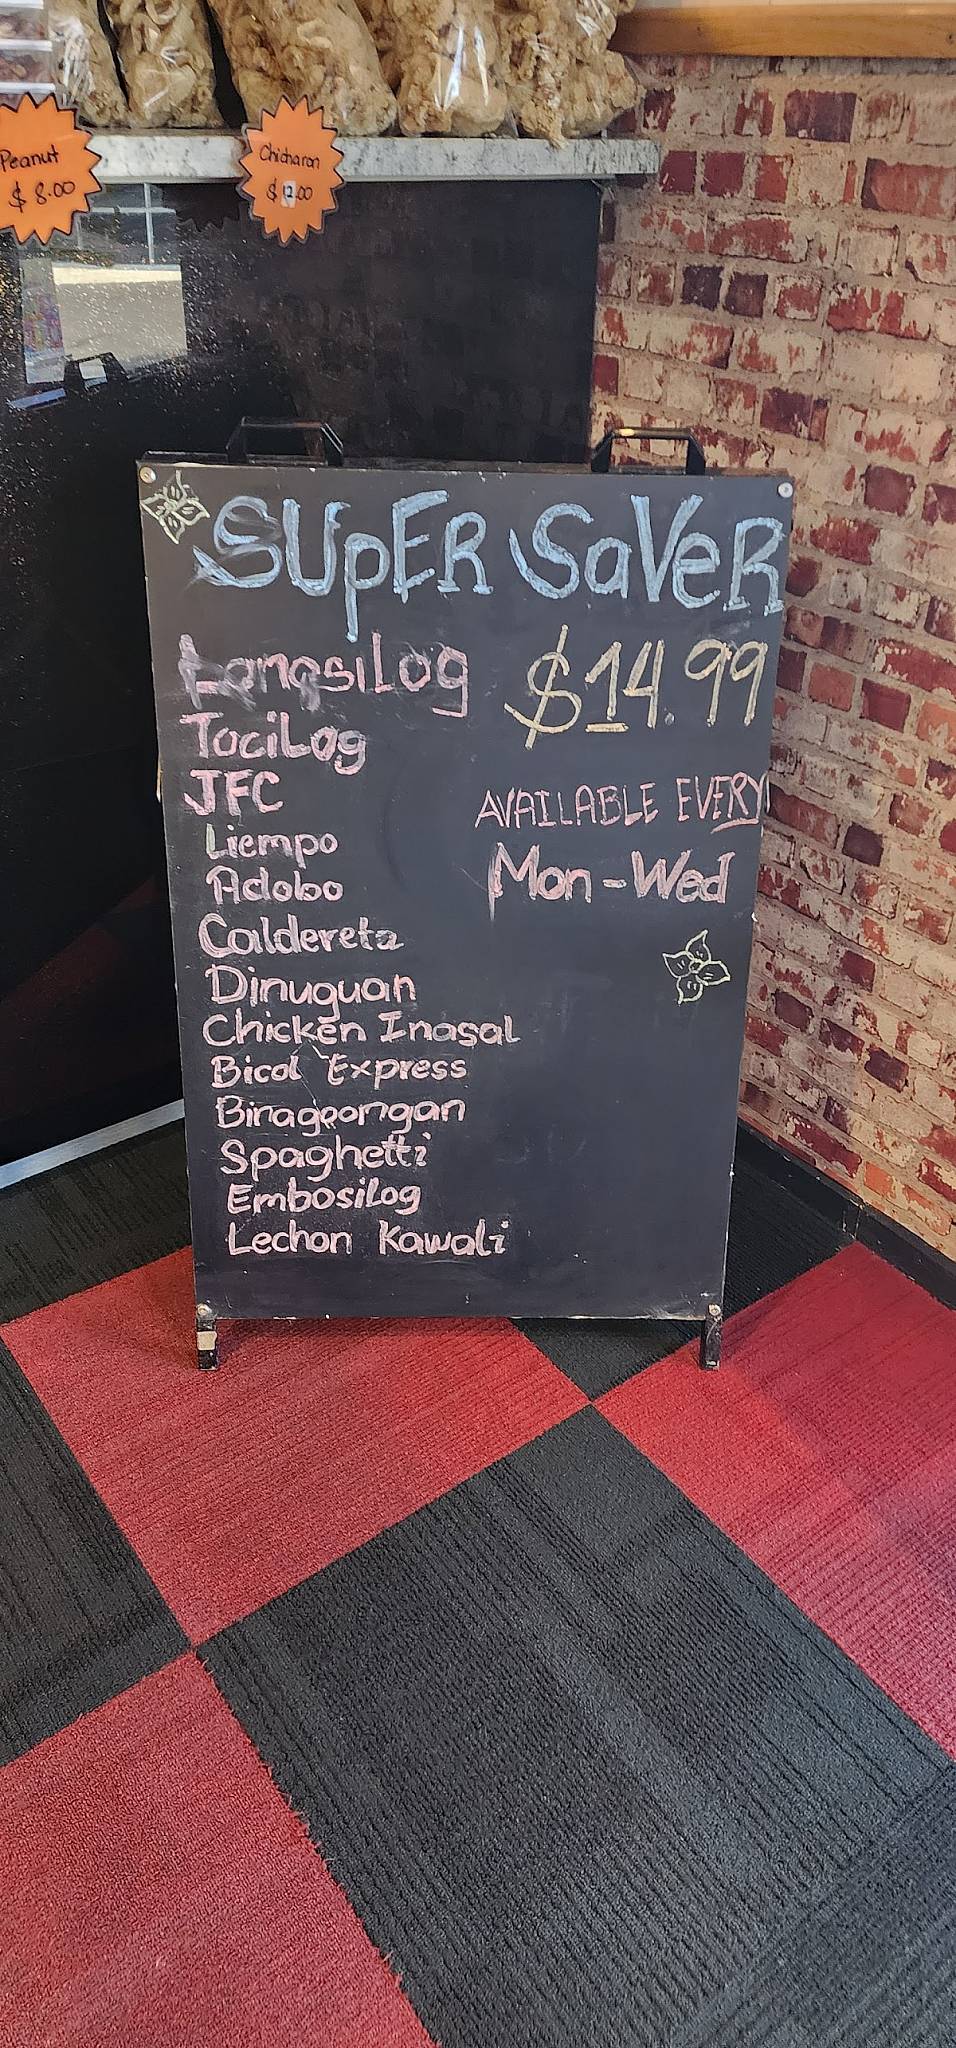 Peanut
$ 8.00
Chicharon
$ 12.00
SUpER SaVeR
LongsiLog
$14.99
TociLog
JFC
AVAILABLE EVERY
Liempo
Mon-Wed
Adobo
Caldereta
Dinuguan
Chicken Inasal
Bicol Express
Binagoongan
Spaghetti
Embosilog
Lechon Kawali